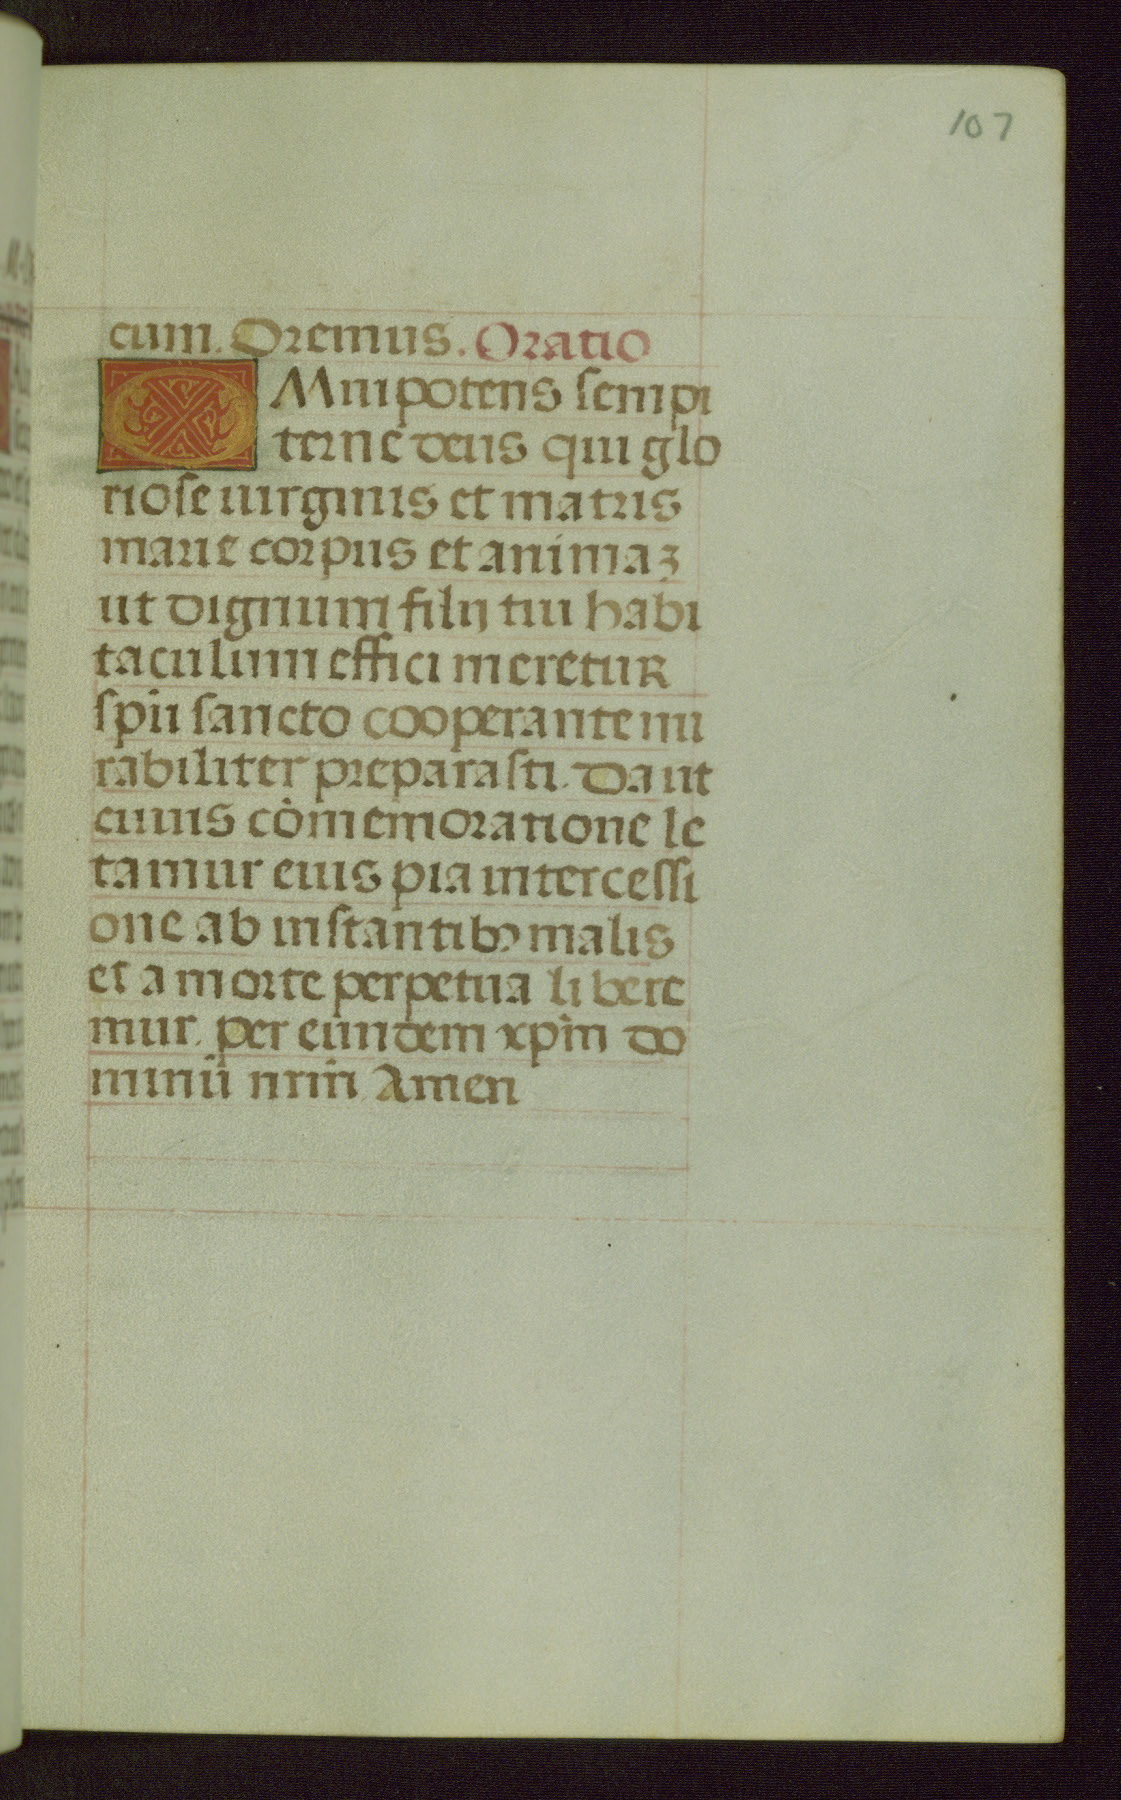 107
cum. Oremus. Oratio
OMnipotens sempi
terne deus qui glo
riose uirginis et matris
marie corpus et animaꝫ
ut dignum filij tui habi
taculum effici meretur
spũ sancto cooperante mi
rabiliter preparasti. Da ut
cuius cõmemoratione le
tamur eius pia intercessi
one ab instantibꝰ malis
et a morte perpetua libere
mur. per eundem xpm̃ do
minũ nrm̃ Amen